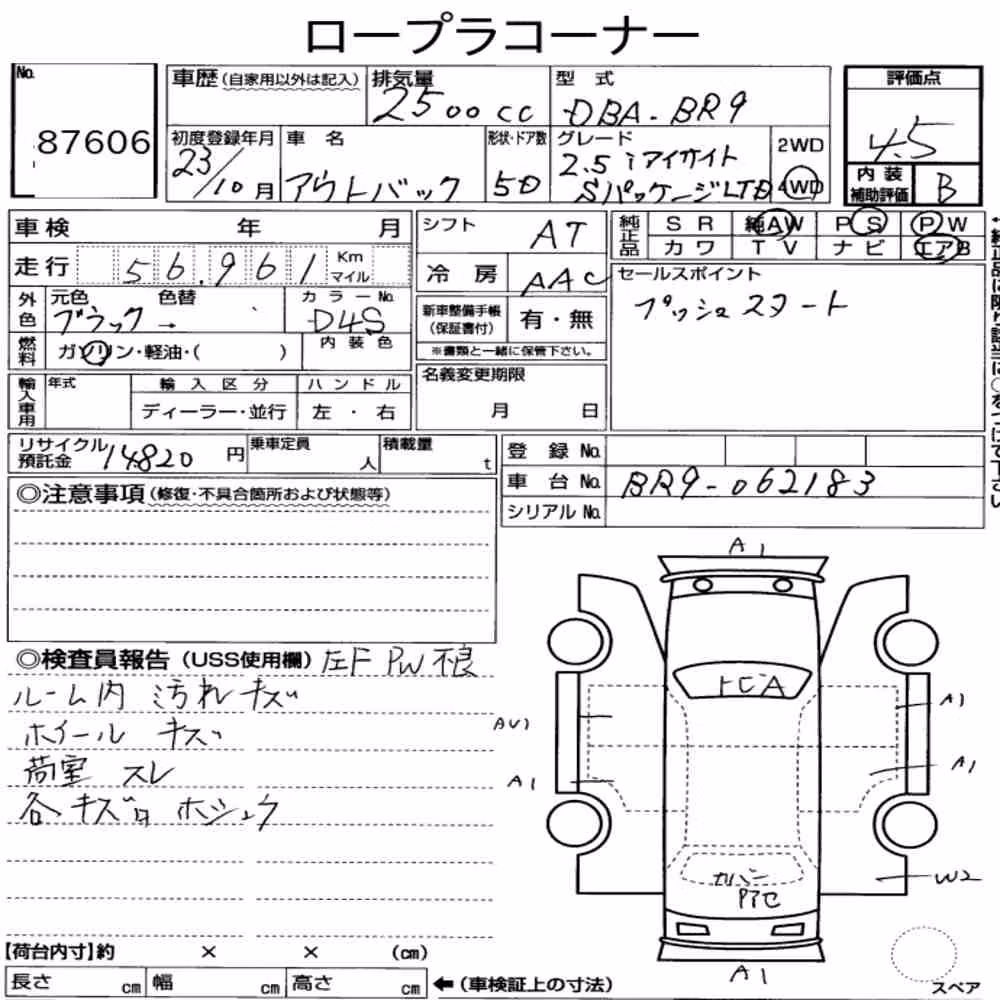 ロープラコーナー
No.
87606
車歴 (自家用以外は記入)
排気量
2500cc
型 式
DBA-BR9
評価点
4.5
初度登録年月
23/10月
車 名
アウトバック
形状・ドア数
5D
グレード
2.5iアイサイト
SパッケージLTD
2WD
4WD
内装
補助評価
B
車検 年 月
走行 56,961 Km
マイル
シフト AT
冷房 AAC
純正品
SR 純AW PS PW
カワ TV ナビ エアB
セールスポイント
プッシュスタート
外色
元色 色替
ブラック→
カラーNo.
D4S
新車整備手帳
(保証書付)
有・無
※書類と一緒に保管下さい。
燃料
ガソリン・軽油・( )
内装色
輸入車用
年式
輸入区分
ハンドル
ディーラー・並行
左・右
名義変更期限
月 日
リサイクル
預託金
14820円
乗車定員
人
積載量
t
登録No.
車台No. BR9-062183
シリアルNo.
◎注意事項(修復・不具合箇所および状態等)
◎検査員報告(USS使用欄) 左F PW不良
ルーム内 汚れキズ
ホイール キズ
荷室 スレ
各、キズロ ホシュウ
A1
トビA
AU1
A1
A1
A1
カバー
W2
A1
【荷台内寸】約 × × (cm)
長さ cm 幅 cm 高さ cm ←(車検証上の寸法)
スペア